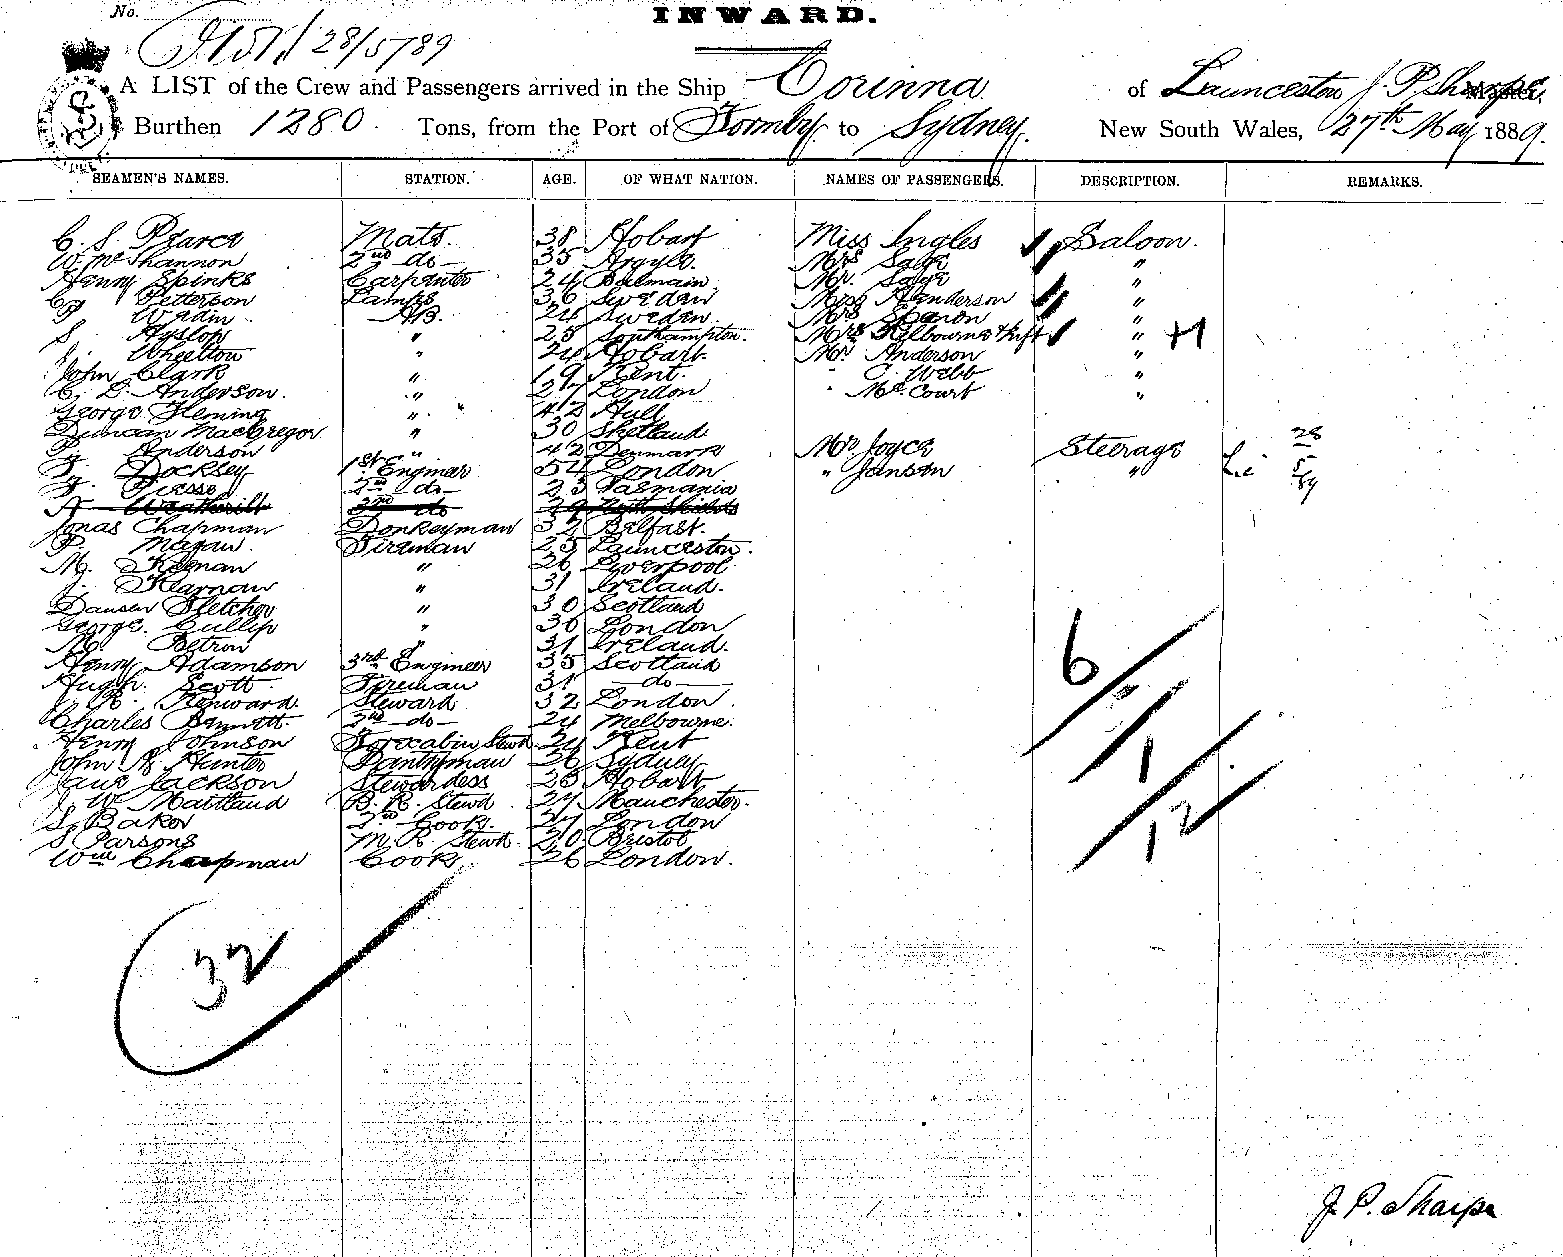 No.
INWARD.
28/5/89
A LIST of the Crew and Passengers arrived in the Ship Corinna of Launceston J. P. Sharpe Master,
Burthen 1280 Tons, from the Port of Formby to Sydney New South Wales, 27th May 1889.
SEAMEN'S NAMES. STATION. AGE. OF WHAT NATION. NAMES OF PASSENGERS. DESCRIPTION. REMARKS.
C. S. Pearce Mate. 38 Hobart Miss Ingles Saloon.
W. McShannon 2nd do 35 Argyle. Mrs Sage "
Henry Spinks Carpenter 24 Balmain Mr. Sage "
Petterson Lamps 36 Sweden Miss Henderson "
Wadin AB. 24 Sweden. Mrs "
S. Hyslop " 25 Southampton. Mrs Kelbourne & "
J. Wheelton " 24 Hobart. Mr Anderson "
John Clark " 19 Kent. " C. Webb "
C. D. Anderson. " 27 London " McCourt "
George Fleming " 42 Hull
Duncan MacGregor " 30 Shetland
P. Anderson " 42 Denmark Mr Joyce Steerage
Docksey 1st Enginer 54 London " Janson "
28
5
89
Piesse 2nd do 23 Tasmania
Weatherilt 3rd do 29 North Shields
Jonas Chapman Donkeyman 32 Belfast.
P. Fireman 25 Launceston.
M. Keenan " 26 Liverpool
J. Kearnan " 31 Ireland.
Fletcher " 30 Scotland
George. Cullip " 36 London
M. " 31 Ireland.
Henry Adamson 3rd Engineer 35 Scotland
Hugh. Scott Fireman 31 do
R. Kenward. Steward 32 London.
Charles 2nd do 24 Melbourne.
Henry Johnson Forecabin Stewd 24 Kent
John Hunter Pantryman 26 Sydney
Jane Jackson Stewardess 28 Hobart
J. W. Maitland B. R. Stewd 27 Manchester.
S. Baker 2nd Cook. 27 London
S Parsons M. R Stewd. 20 Bristol
Wm Chapman Cook. 26 London.
6
1
12
32
J. P. Sharpe